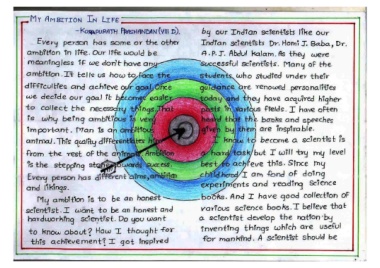 MY AMBITION IN LIFE
PRACHANDAN (VIII D).
Every person has some or the other
ambition in life. Our life would be
meaningless if we don't have any
ambition. It tells us how to face the
difficulties and achieve our goal. Once
we decide our goal it becomes easier
to collect the necessary things. That
is why being ambitious is very
important. Man is an ambitious
animal. This quality differentiates him
from the rest of the animals. Ambition
is the stepping stone towards success.
Every person has different aims, ambition
and likings.
My ambition is to be an honest
scientist. I want to be an honest and
hardworking scientist. Do you want
to know about? How I thought for
this achievement? I got inspired
by our Indian scientists like our
Indian scientists Dr. Homi J. Baba, Dr.
A. P. J. Abdul Kalam. As they were
successful scientists. Many of the
students, who studied under their
guidance are renowed personalities
today and they have acquired higher
posts in various fields. I have often
heard that the books and speeches
given by them are inspirable.
I know to become a scientist is
a hard task but I will try my level
best to achieve this. Since my
childhood I am fond of doing
experiments and reading science
books. And I have good collection of
various science books. I believe that
a scientist develop the nation by
inventing things which are useful
for mankind. A scientist should be